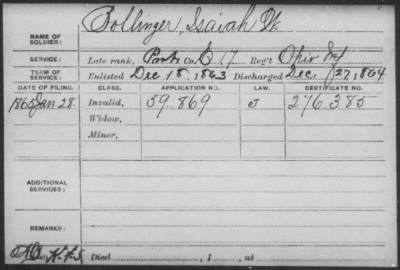 Bollinger, Isaiah W.
NAME OF SOLDIER:
SERVICE: Late rank, Co. 17 Reg't Ohio Inf
TERM OF SERVICE: Enlisted Dec 18, 1863 Discharged Dec 27, 1864
DATE OF FILING. CLASS. APPLICATION NO. LAW. CERTIFICATE NO.
1865 Jan 28 Invalid, 59.869 276.385
Widow,
Minor,
ADDITIONAL SERVICES:
REMARKS:
Died , 1 , at